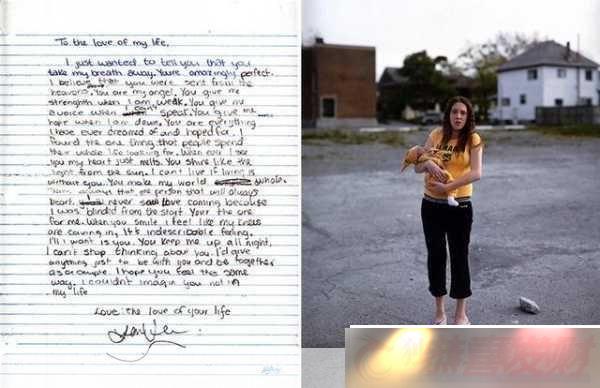 To the love of my life,
I just wanted to tell you that you
take my breath away. Youre amazingly perfect.
I believe that you were sent from the
heavens. You are my angel. You give me
strenghth when I am weak. You give me
a voice when I cant speak. You give me
hope when I am down. You are everything
I have ever dreamed of and hoped for. I
found the one thing that people spend
their whole life looking for. When ever I see
you my heart just melts. You shine like the
light from the sun. I can't live if living is
without you. You make my world whole.
always that one person that will always
heart. I never saw love coming because
I was blinded from the start. Your the one
for me. When you smile I feel like my knees
are caving in. It's indescribable feeling.
All I want is you. You keep me up all night,
I can't stop thinking about you. I'd give
anything just to be with you and be together
as a couple. I hope you feel the same
way. I couldn't imagine you not in
my life
Love: the love of your life